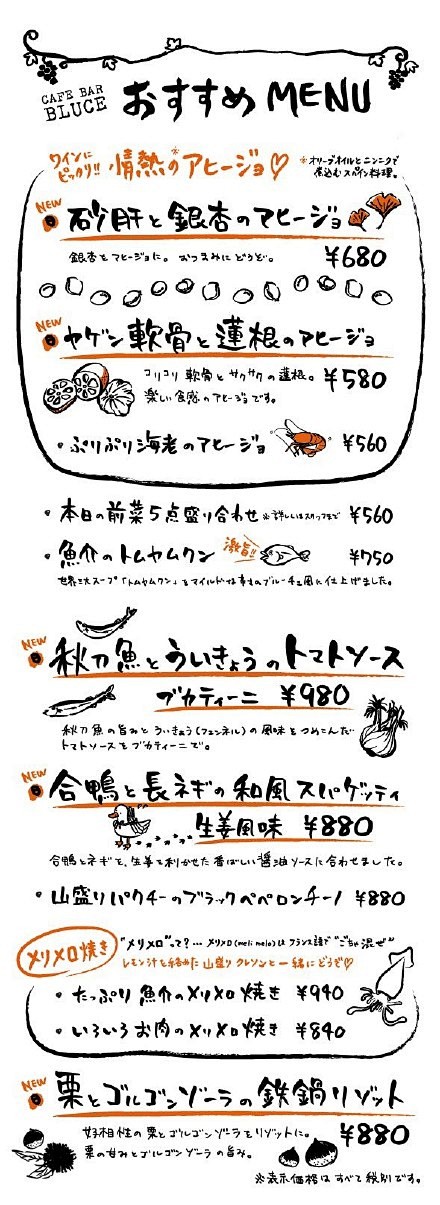 CAFE BAR
BLUCE
おすすめ MENU
ワインに
ピッタリ!! 情熱のアヒージョ♡
※オリーブオイルとニンニクで
煮込むスペイン料理。
NEW
砂肝と銀杏のアヒージョ
銀杏をアヒージョに。おつまみにどうぞ。 ¥680
NEW
ヤゲン軟骨と蓮根のアヒージョ
コリコリ軟骨とサクサクの蓮根。 ¥580
楽しい食感のアヒージョです。
・ぷりぷり海老のアヒージョ ¥560
・本日の前菜5点盛り合わせ ※詳しくはスタッフまで ¥560
・魚介のトムヤムクン 激旨!! ¥750
世界三大スープ「トムヤムクン」をマイルドな ブルーチェ風に仕上げました。
NEW
秋刀魚とういきょうのトマトソース
ブカティーニ ¥980
秋刀魚の旨みとういきょう(フェンネル)の風味をつめこんだ
トマトソースをブカティーニで。
NEW
合鴨と長ネギの和風スパゲッティ
生姜風味 ¥880
合鴨とネギを、生姜を利かせた香ばしい醤油ソースに合わせました。
・山盛りパクチーのブラックペペロンチーノ ¥880
メリメロ焼き
"メリメロ"って?… メリメロ(meli melo)はフランス語で"ごちゃ混ぜ"
レモン汁を絡めた山盛りクレソンと一緒にどうぞ♡
・たっぷり魚介のメリメロ焼き ¥940
・いろいろお肉のメリメロ焼き ¥840
NEW
栗とゴルゴンゾーラの鉄鍋リゾット
好相性の栗とゴルゴンゾーラをリゾットに。 ¥880
栗の甘みとゴルゴンゾーラの旨み。
※表示価格はすべて税別です。